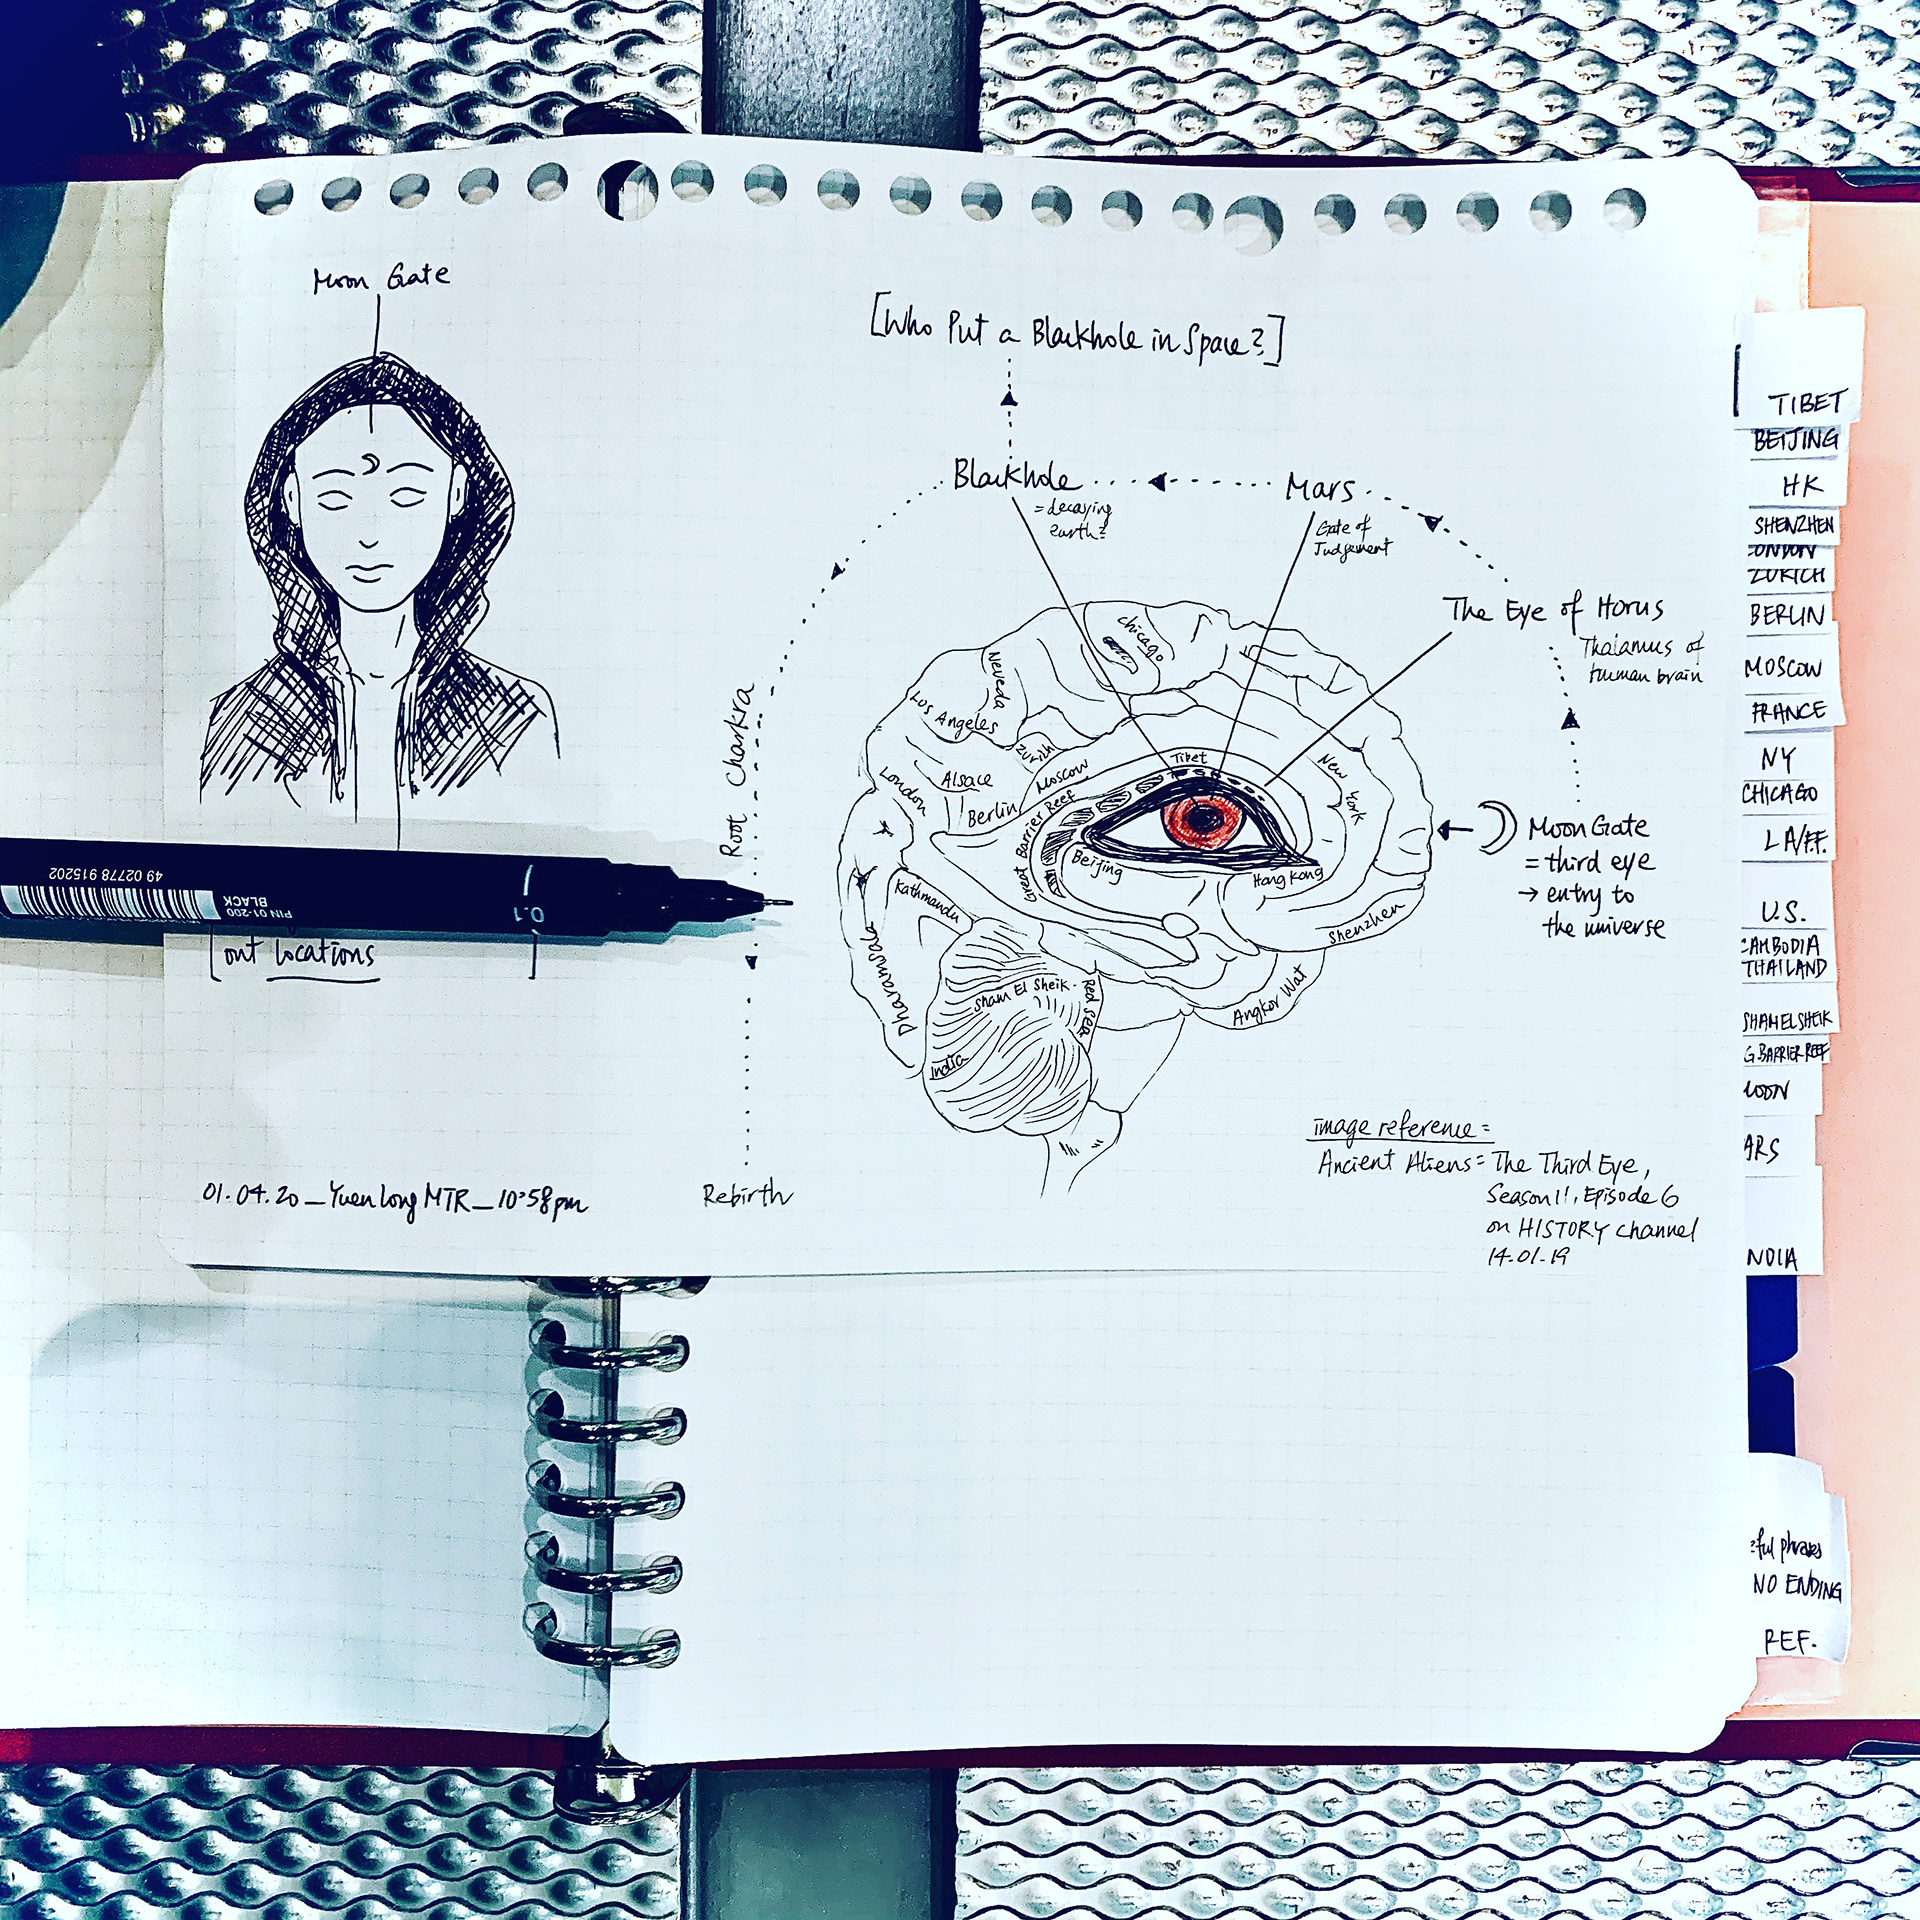 Moon Gate
[Who Put a Blackhole in Space?]
Blackhole
= decaying
earth?
Mars
Gate of
Judgement
The Eye of Horus
Thalamus of
human brain
Moon Gate
= third eye
→ entry to
the universe
Root Charkra
Rebirth
Chicago
Neveda
Los Angeles
Zurich
Alsace
Moscow
Tibet
New York
London
Berlin
Great Barrier Reef
Beijing
Hong Kong
Shenzhen
Kathmandu
Pharamsala
Sham El Sheik
Red Sea
Angkor Wat
India
49 02778 915202
PIN 01-200
BLACK
0.1
out locations
01.04.20_Yuen Long MTR_10:58pm
image reference=
Ancient Aliens= The Third Eye,
Season 11, Episode 6
on HISTORY channel
14.01.19
TIBET
BEIJING
HK
SHENZHEN
LONDON
ZURICH
BERLIN
MOSCOW
FRANCE
NY
CHICAGO
LA/FF.
U.S.
CAMBODIA
THAILAND
SHAMELSHEIK
G.BARRIER REEF
MOON
ARS
NDIA
phrases
NO ENDING
REF.